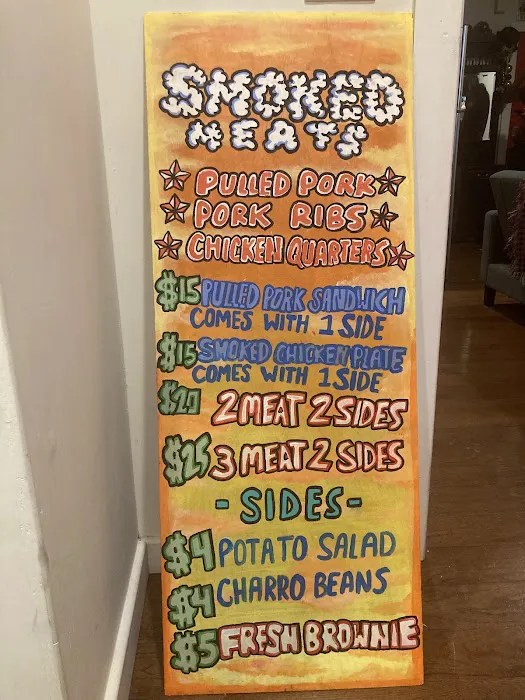 SMOKED
MEATS
PULLED PORK
PORK RIBS
CHICKEN QUARTERS
$15 PULLED PORK SANDWICH
COMES WITH 1 SIDE
$15 SMOKED CHICKEN PLATE
COMES WITH 1 SIDE
$20 2 MEAT 2 SIDES
$25 3 MEAT 2 SIDES
- SIDES -
$4 POTATO SALAD
$4 CHARRO BEANS
$5 FRESH BROWNIE